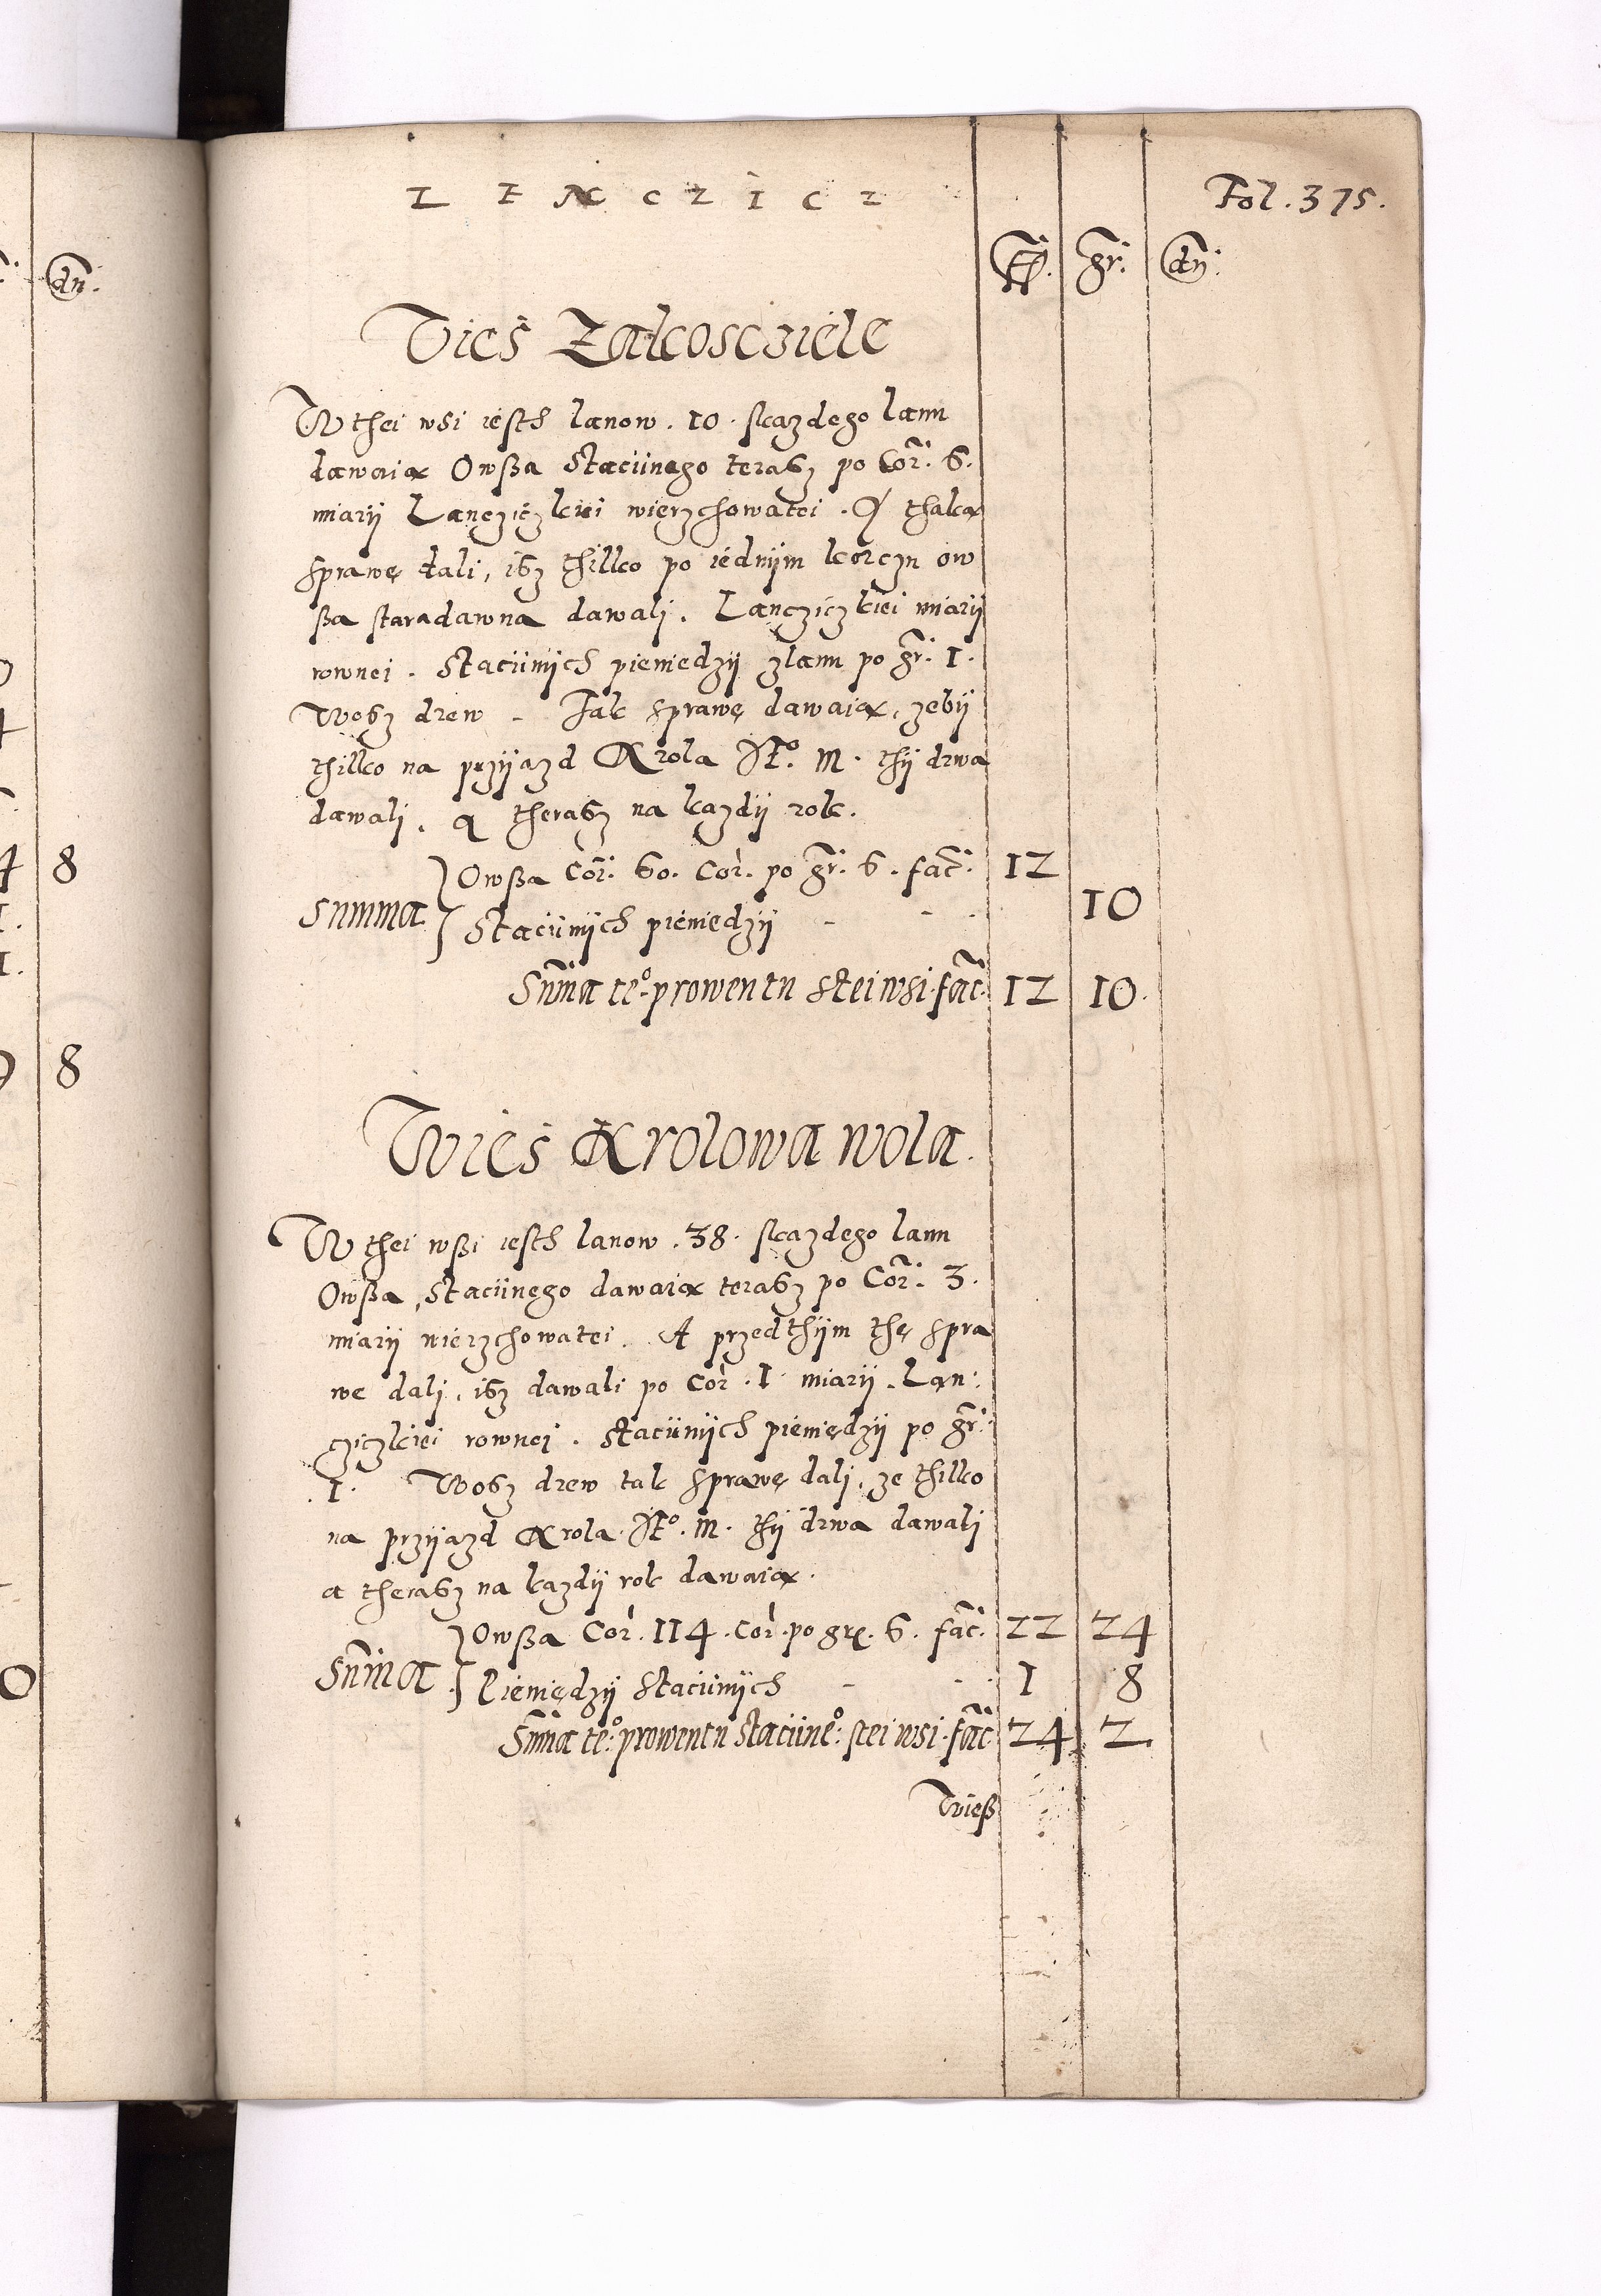 LENCZICZ
Fol. 375.
fl. gr. dn.
Wieś Zakosciele
W thei wsi iesth lanow . 10 . skazdego lanu
dawaią Owßa Staciinego teraSz po Cor. 6.
miarÿ Lanczÿczkiei wierzchowatei . A thaką
sprawę dali, iSz thilko po iednÿm korczu ow
ßa staradawna dawali . Lancziczkiei miarÿ
rownei . StaciinÿcH pieniedzÿ zlanu po gr. 1.
WoSz drew - Tak sprawę dawaią, zebÿ
thilko na przÿiazd Krola JEº. M. thÿ drwa
dawali . a theraSz na kazdÿ rok.
Summa
Owßa Cor. 60. Cor. po gr. 6. fac. 12
StaciinÿcH pieniedzÿ - - - 10
Sum̄a teº. prowentu stei wsi. fac. 12 10.
Wieś Krolowa wola.
W thei wßi iesth lanow . 38 . skazdego lanu
Owßa, Staciinego dawaią teraSz po Cor. 3.
miarÿ wierzchowatei . A przedthÿm thę spra
we dali, iSz dawali po Cor . 1 . miarÿ . Lan:
cziczkiei rownei . StaciinÿcH pieniędzÿ po gr.
. 1. WoSz drew tak sprawę dali, ze thilko
na przÿiazd Krola . JEº. M. thÿ drwa dawali
a theraSz na kazdÿ rok dawaią.
Sum̄a
Owßa Cor . 114 . Cor . po gr. 6. fac. 22 24
Pieniędzÿ StaciinÿcH - - - 1 8
Sum̄a teº: prowentu Staciineº: stei wsi . fac 24 2.
Wieß
dn.
8
8